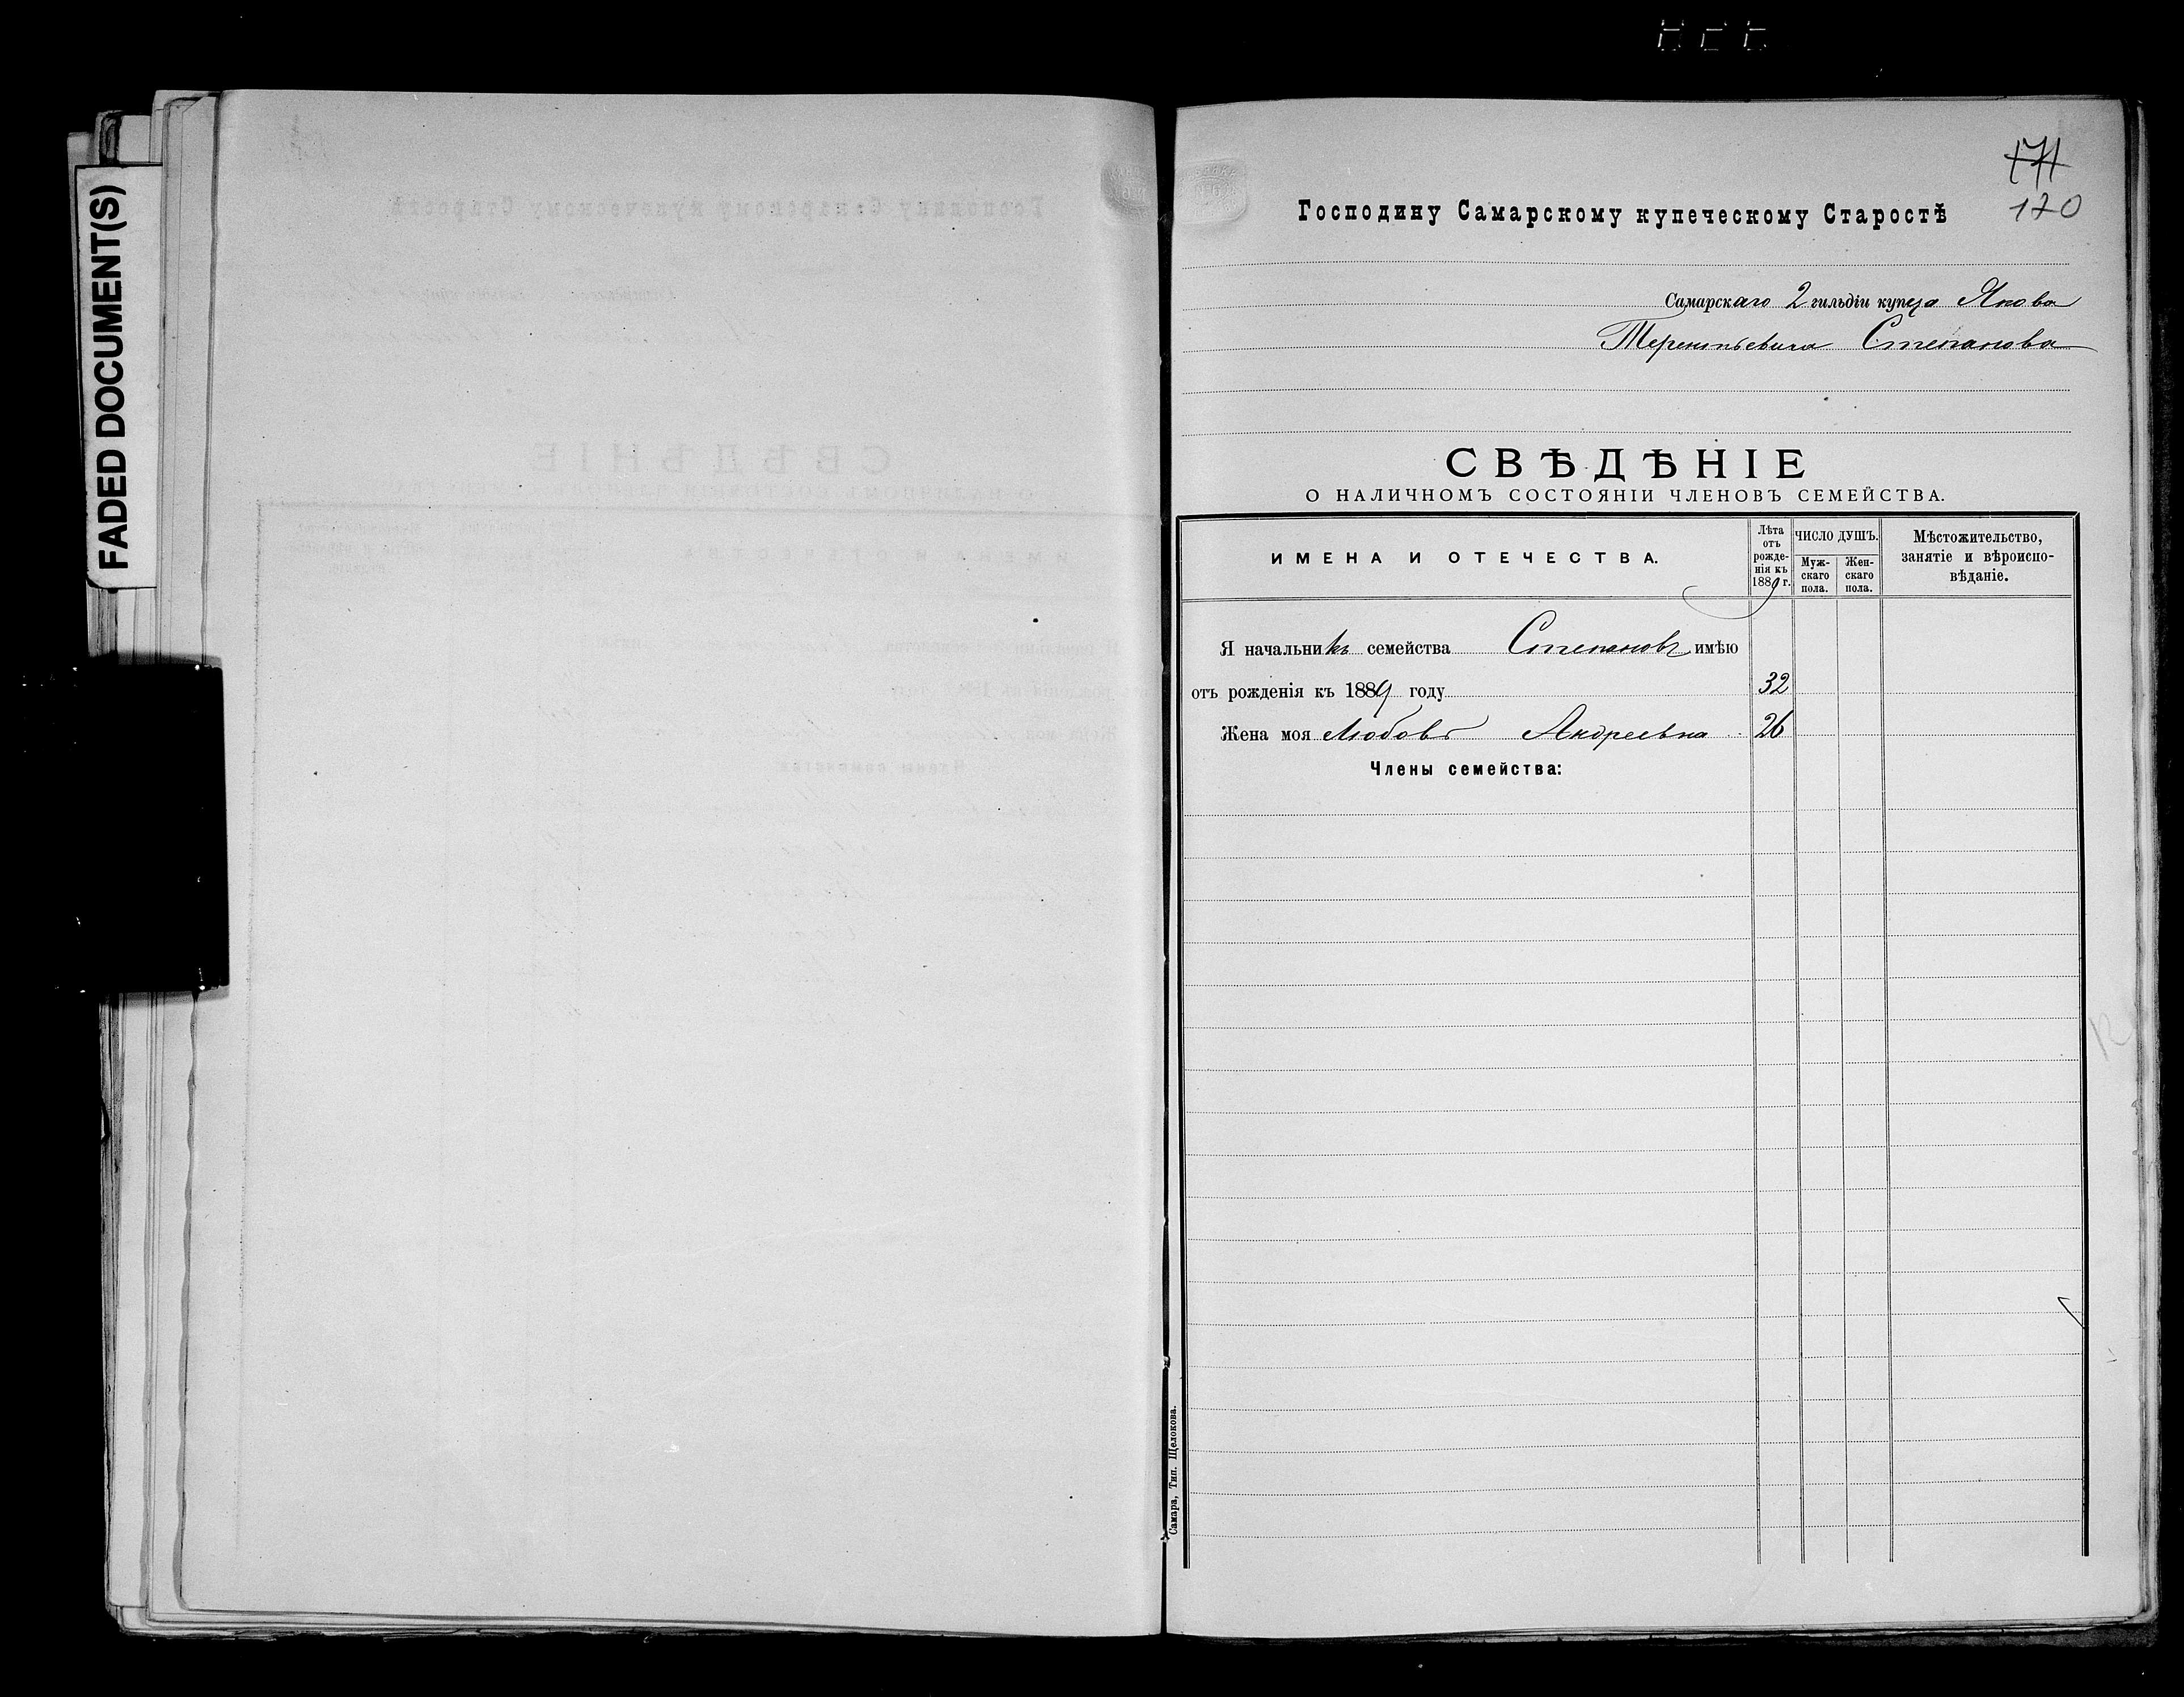 FADED DOCUMENT(S)
171
170
Господину Самарскому купеческому Старостѣ
Самарскаго 2 гильдіи купца Якова
Терентьевича Степанова
СВѢДѢНІЕ
О НАЛИЧНОМЪ СОСТОЯНІИ ЧЛЕНОВЪ СЕМЕЙСТВА.
ИМЕНА И ОТЕЧЕСТВА.
Лѣта
отъ
рожде-
нія къ
1889 г.
ЧИСЛО ДУШЪ.
Муж-
скаго
пола.
Жен-
скаго
пола.
Мѣстожительство,
занятіе и вѣроиспо-
вѣданіе.
Я начальникъ семейства Степановъ имѣю
отъ рожденія къ 1889 году 32
Жена моя Любовь Андреевна 26
Члены семейства:
Самара, Тип. Щелокова.